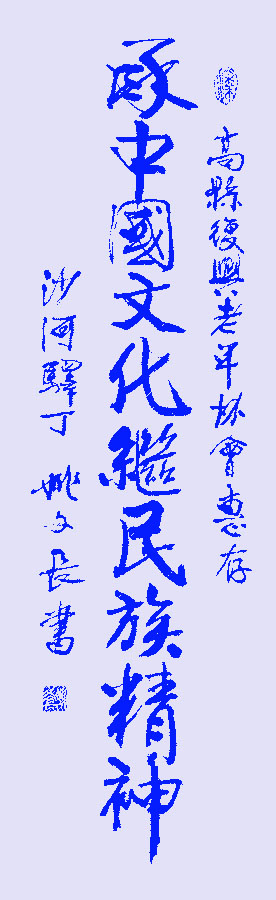 高縣復興老年會惠存
中國文化繼民族精神
沙河驛丁 姚文長書